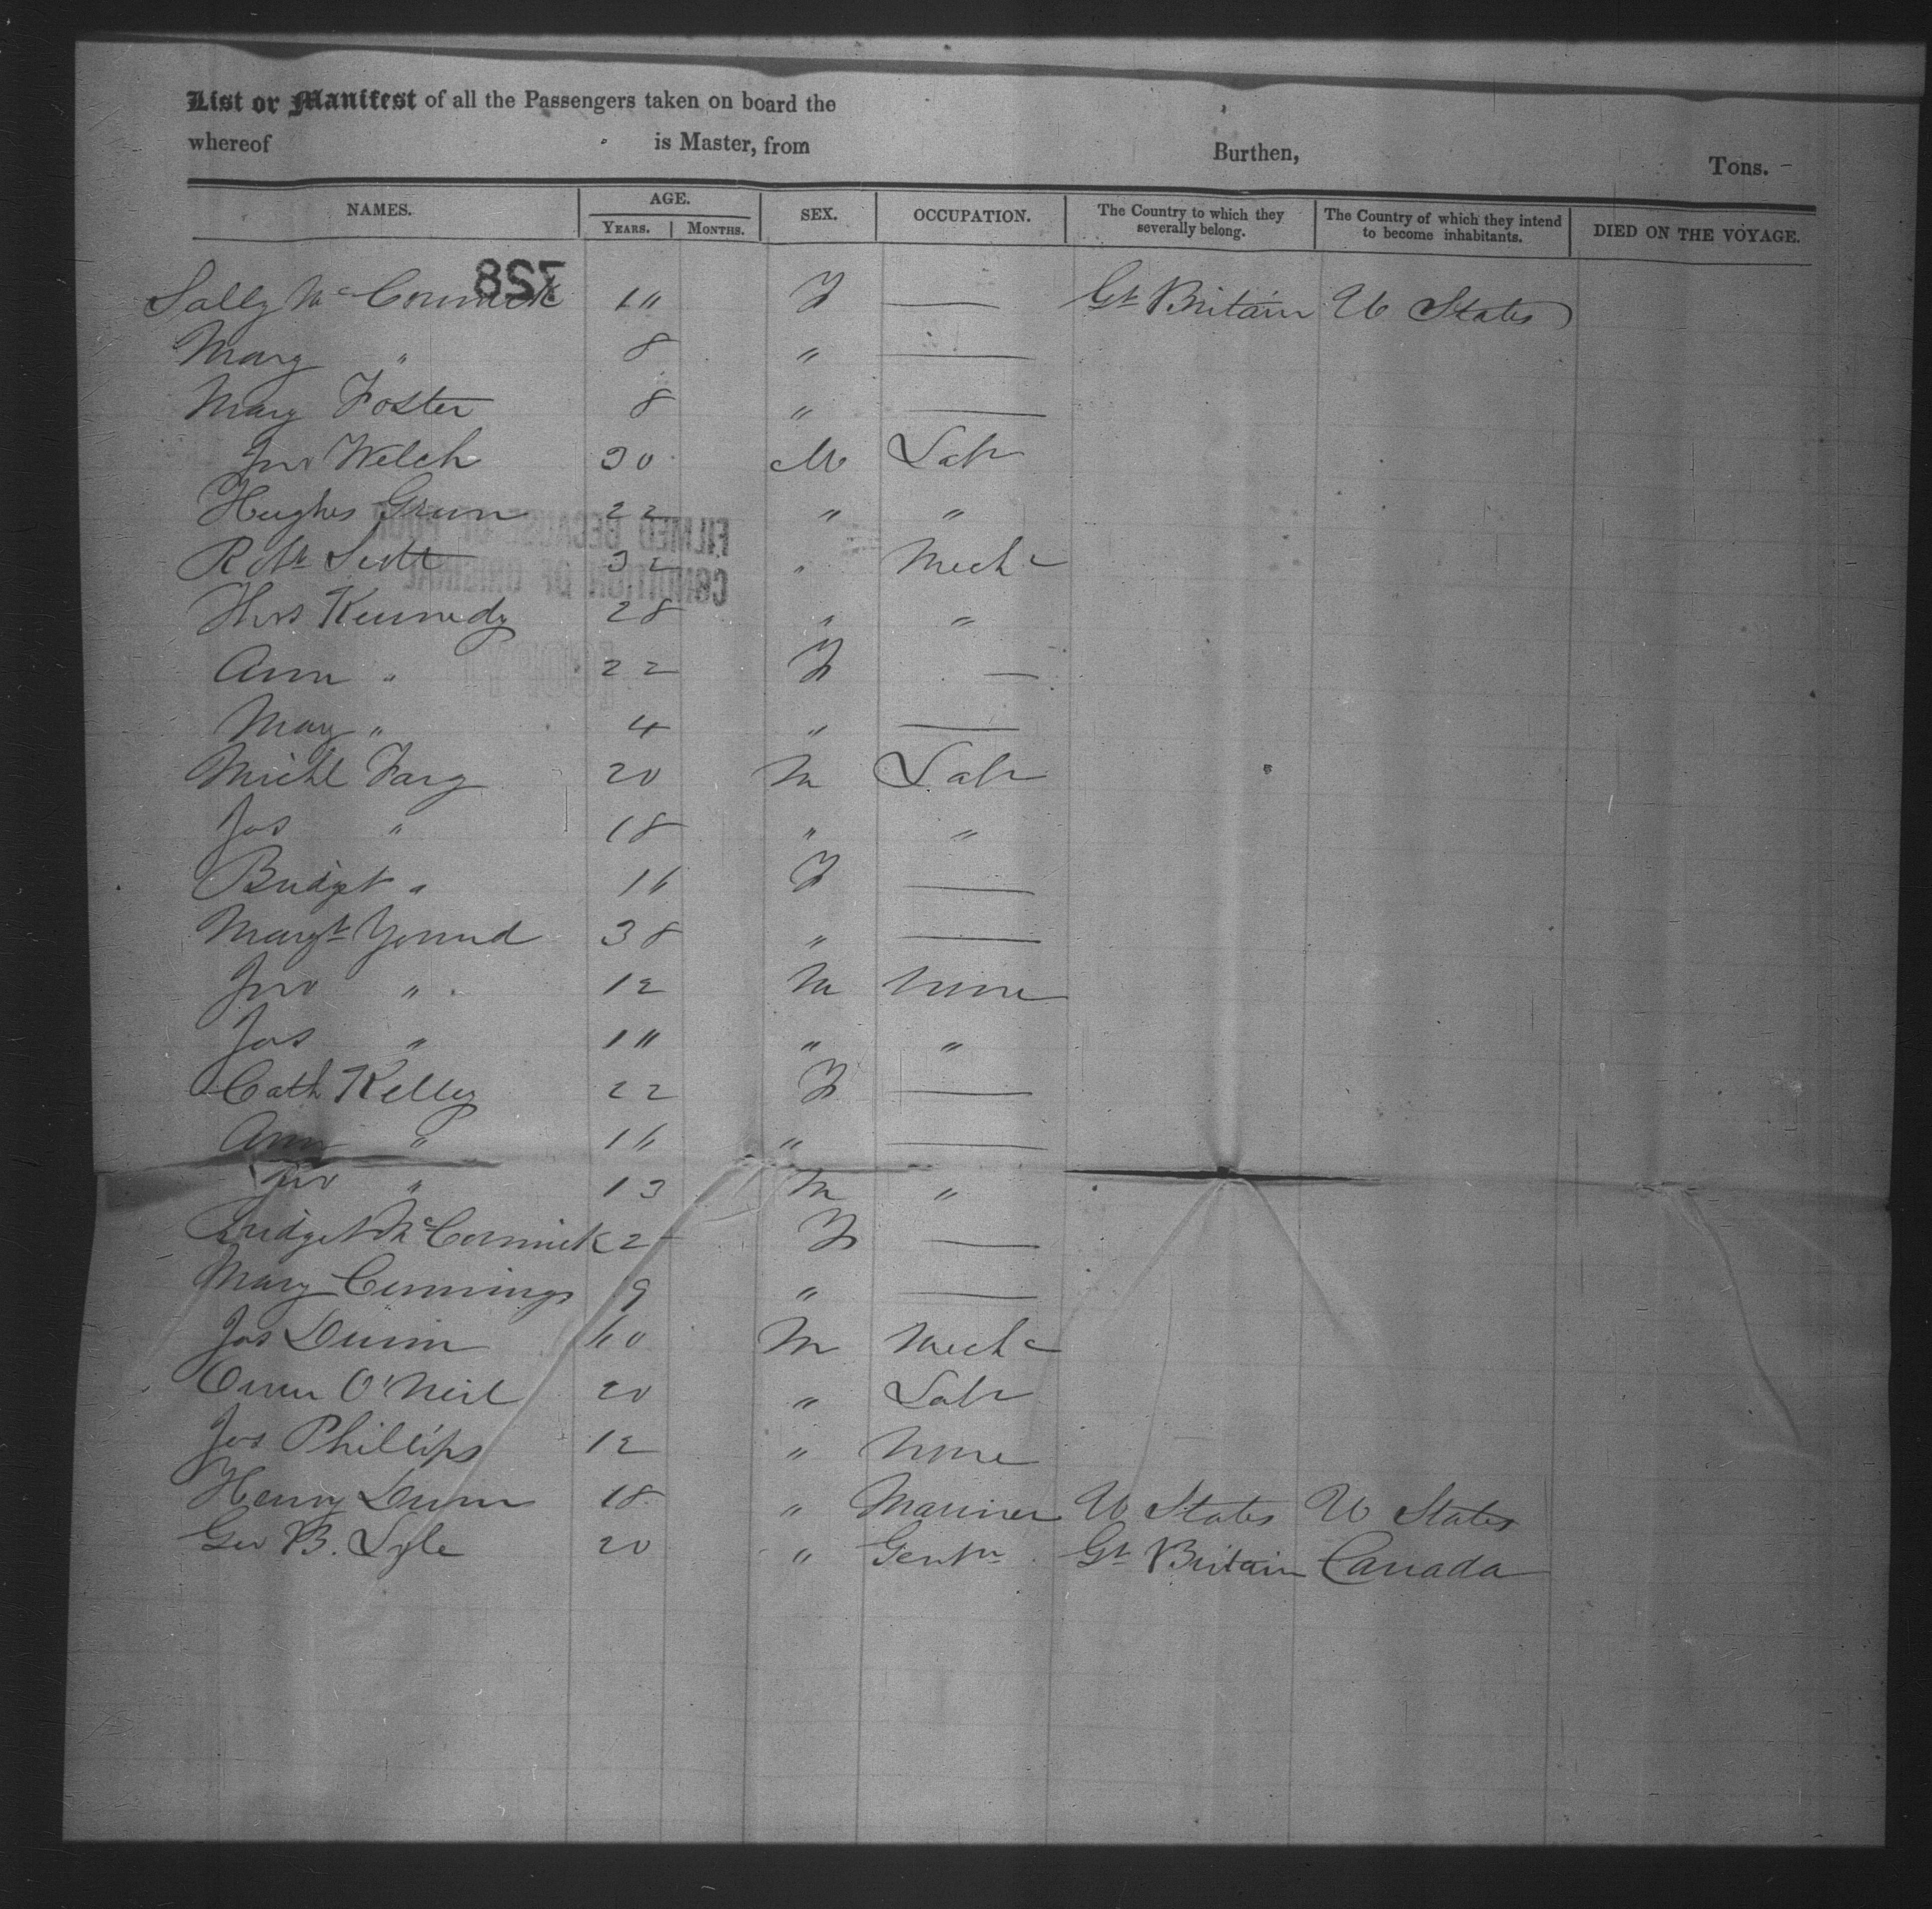 List or Manifest of all the Passengers taken on board the
whereof is Master, from Burthen, Tons.
NAMES. AGE. YEARS. MONTHS. SEX. OCCUPATION. The Country to which they severally belong. The Country of which they intend to become inhabitants. DIED ON THE VOYAGE.
358
Sally McCormick 1" F — Gt Britain U States
Mary " 8 " —
Mary Foster 8 " —
Jno Welch 30 M Labr
Hughes 22 " "
FILMED BECAUSE OF POOR
Robt Scott 32 " Mechc
CONDITION OF ORIGINAL
Thos Kennedy 28 " "
Ann " 22 F —
Mary " 4 " —
Michl 20 M Labr
Jas " 18 " "
Bridget " 16 F —
Margt 38 " —
Jno " 12 M None
Jas " 1" " "
Cath Kelley 22 F —
Ann " 16 " —
Jno " 13 M "
Bridget McCormick 2 F —
Mary Cummings 9 " —
Jas Dunn 60 M Mechc
Owen O'Neil 20 " Labr
Jas Phillips 12 " None
Henry Dunn 18 " Mariner U States U States
Geo B. Lyle 20 " Gentn Gt Britain Canada